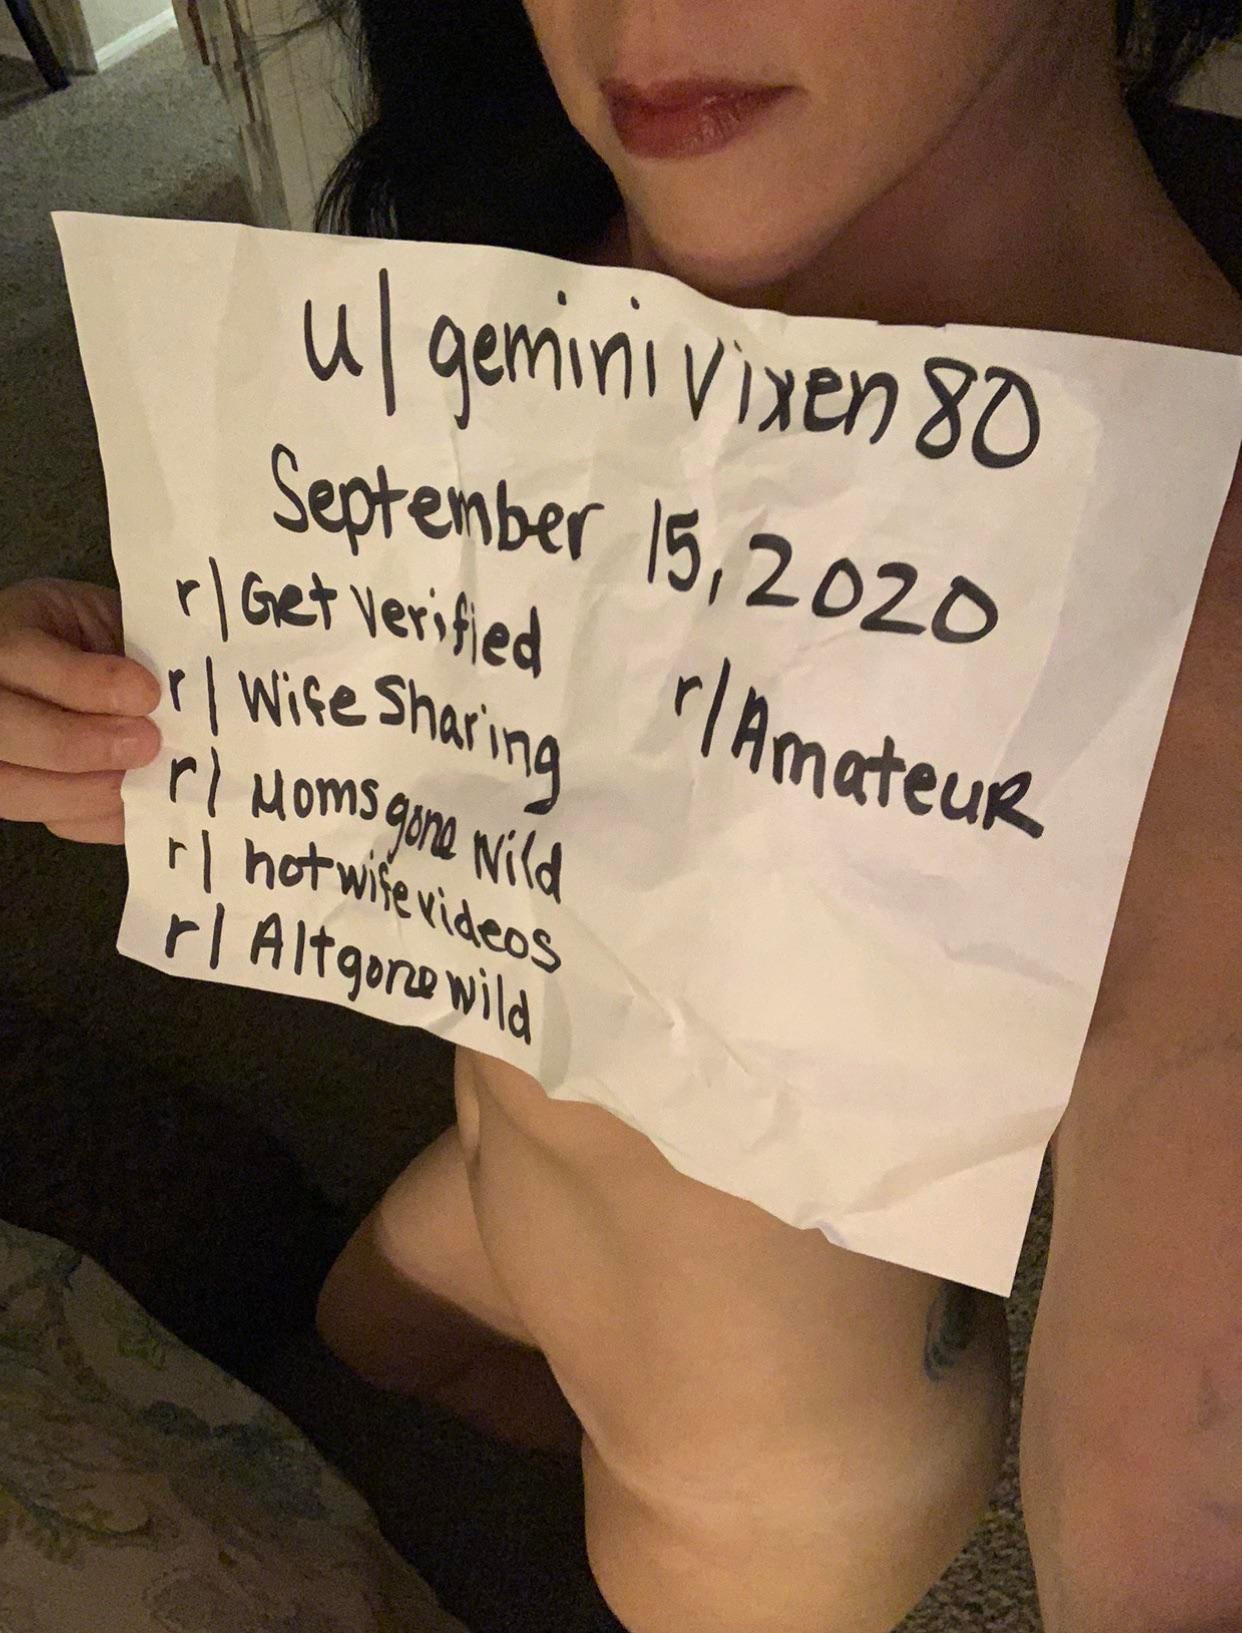 u/geminivixen80
September 15, 2020
r/GetVerified
r/WifeSharing
r/Amateur
r/Momsgonewild
r/hotwifevideos
r/Altgonewild